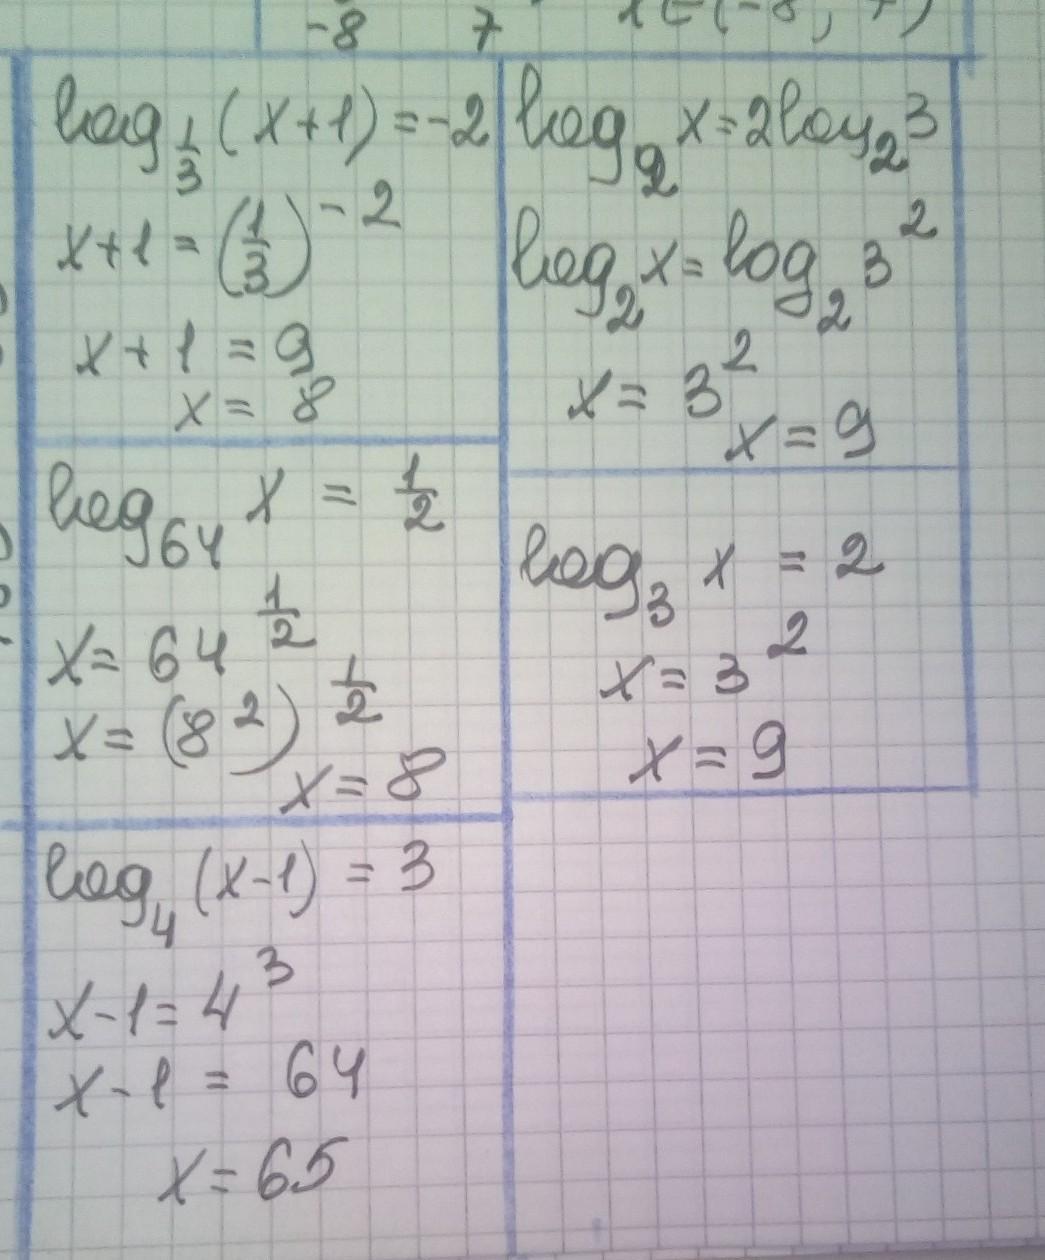 -8 7 x∈(-8; 7)
log_{1/3}(x+1)=-2
x+1=(1/3)^{-2}
x+1=9
x=8
log_{64} x = 1/2
x=64^{1/2}
x=(8^2)^{1/2}
x=8
log_4(x-1)=3
x-1=4^3
x-1=64
x=65
log_2 x=2log_2 3
log_2 x=log_2 3^2
x=3^2
x=9
log_3 x=2
x=3^2
x=9